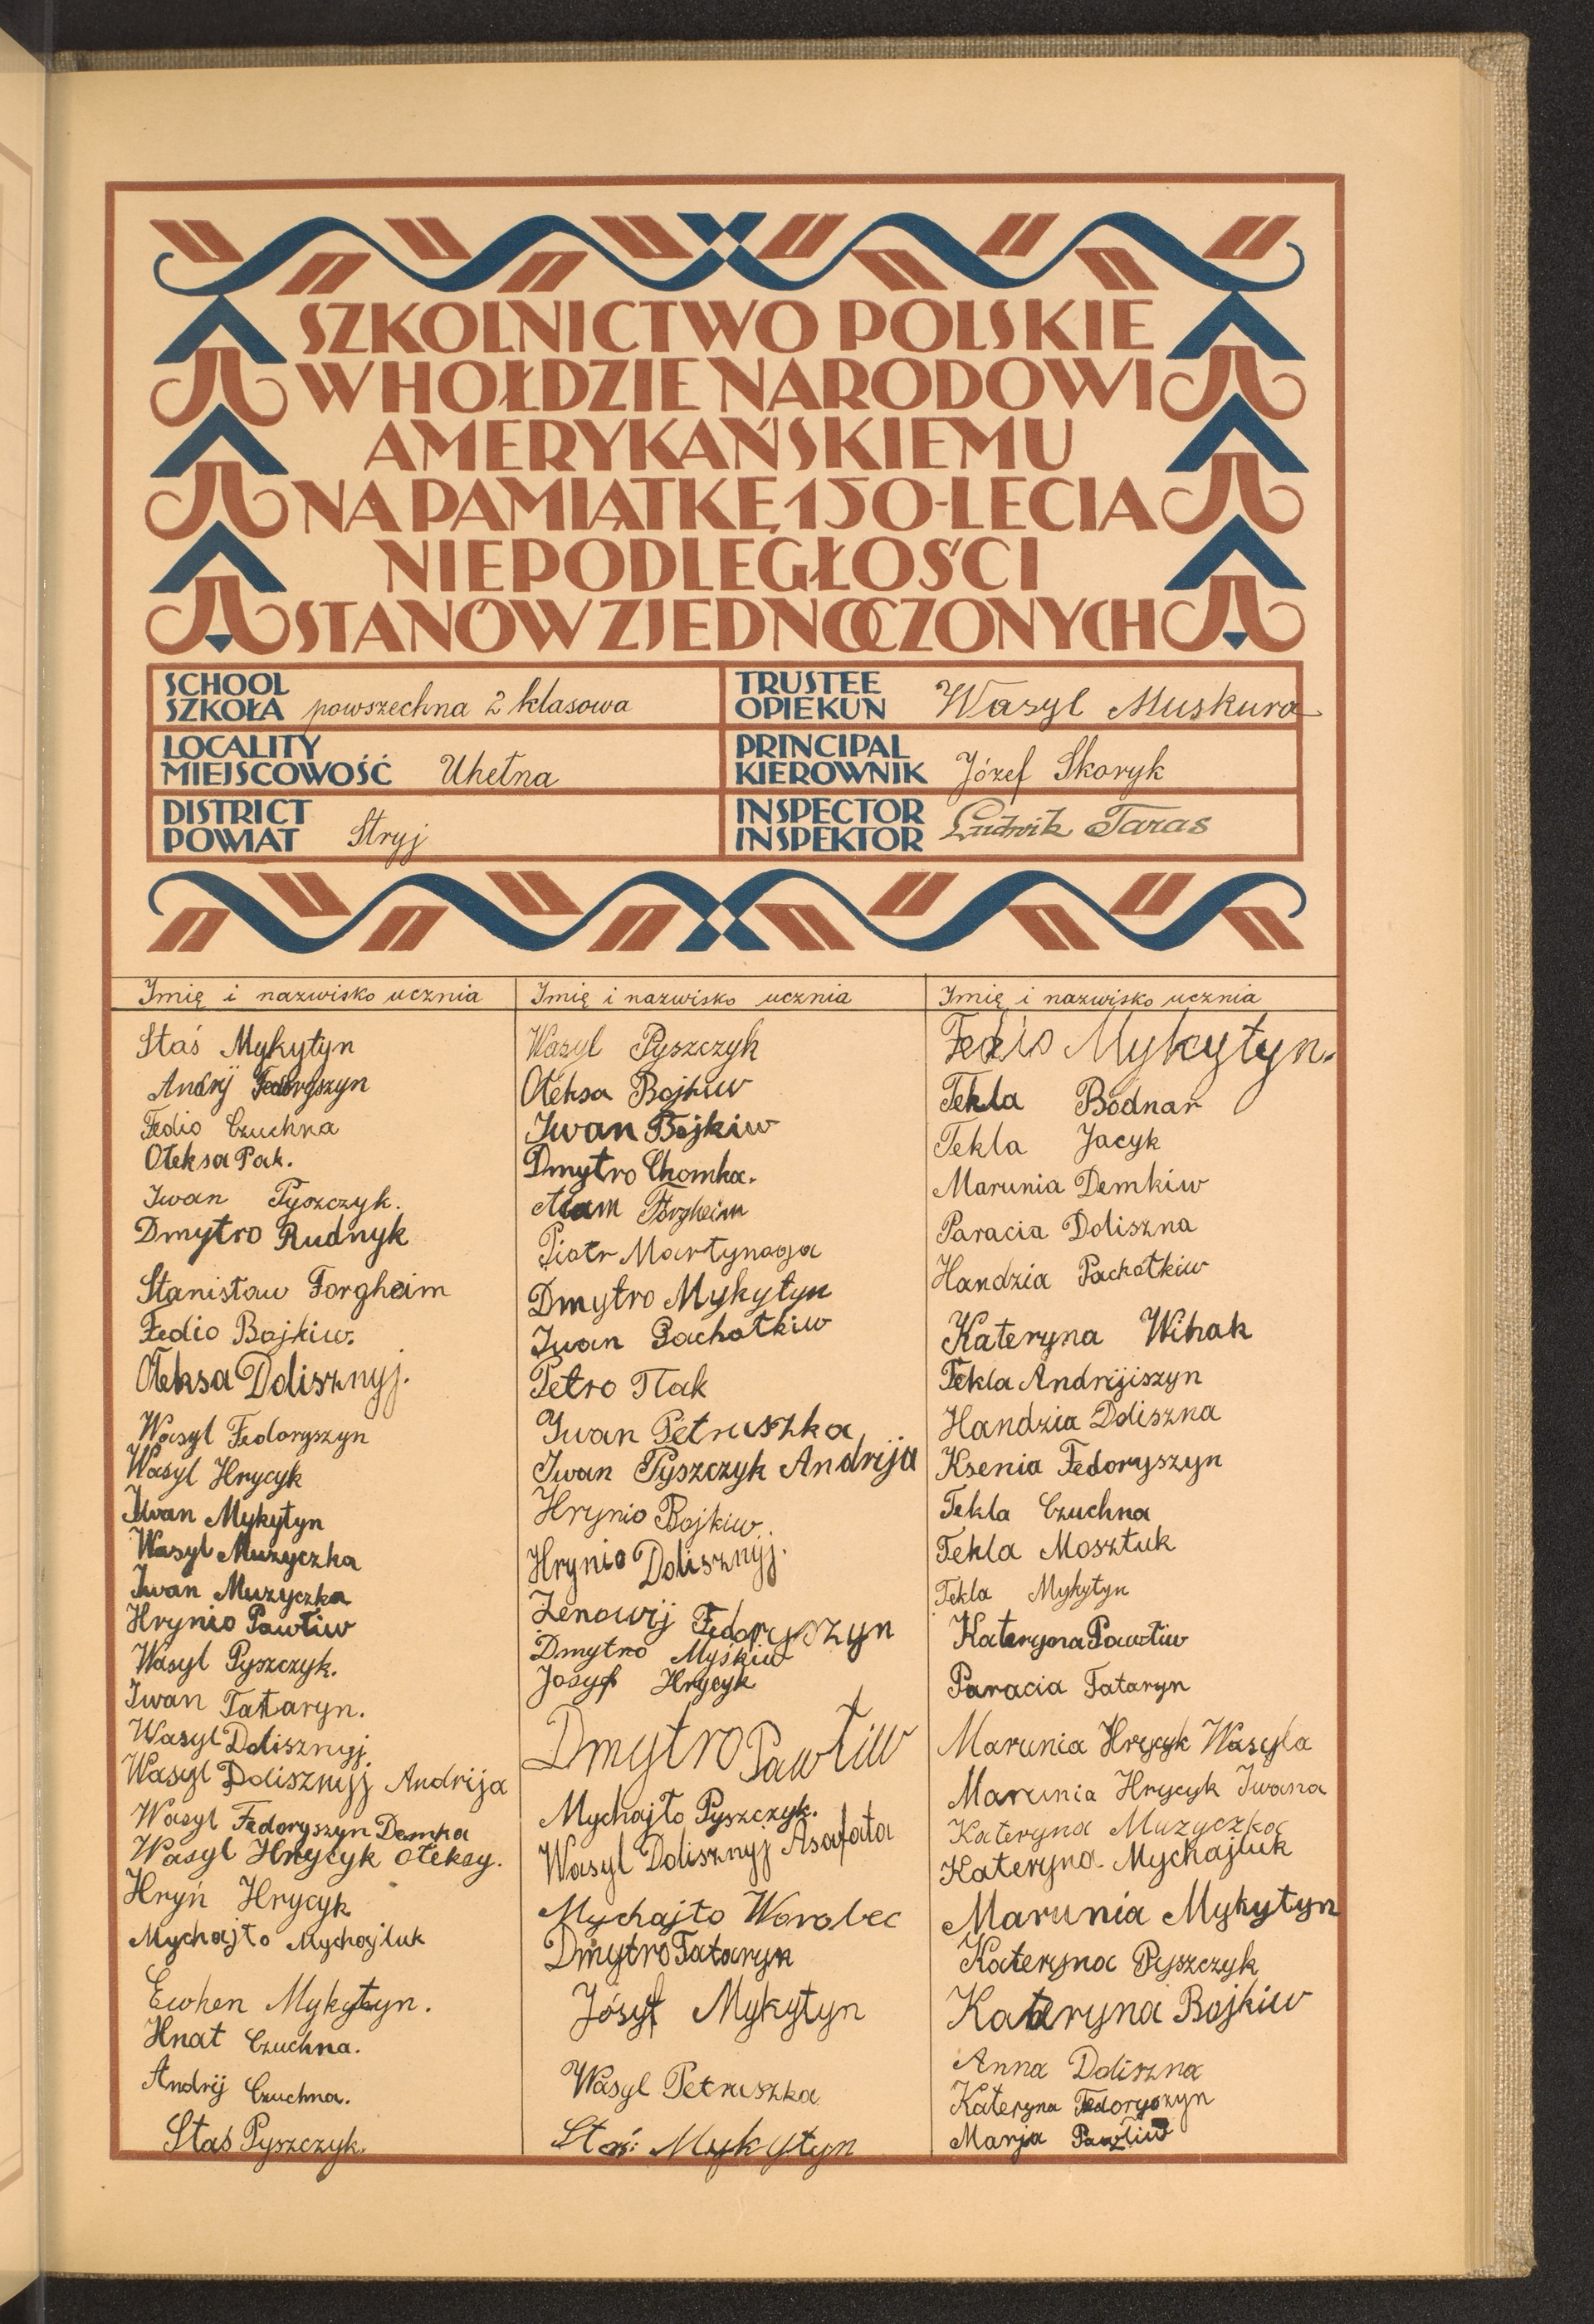 SZKOLNICTWO POLSKIE
W HOŁDZIE NARODOWI
AMERYKAŃSKIEMU
NA PAMIĄTKĘ 150-LECIA
NIEPODLEGŁOŚCI
STANÓW ZJEDNOCZONYCH
SCHOOL
SZKOŁA powszechna 2 klasowa
TRUSTEE
OPIEKUN Wasyl Muskura
LOCALITY
MIEJSCOWOŚĆ Uhełna
PRINCIPAL
KIEROWNIK Józef Skoryk
DISTRICT
POWIAT Stryj
INSPECTOR
INSPEKTOR Ludwik Taras
Imię i nazwisko ucznia
Staś Mykytyn
Andrij Fedoryszyn
Fedio Czuchna
Ołeksa Pak.
Iwan Pyszczyk.
Dmytro Rudnyk
Stanisław Forgheim
Fedio Bojkiw.
Ołeksa Dolisznyj.
Wasyl Fedoryszyn
Wasyl Hrycyk
Iwan Mykytyn
Wasyl Muzyczka
Iwan Muzyczka
Hrynio Pawliw
Wasyl Pyszczyk.
Iwan Tataryn.
Wasyl Dolisznyj
Wasyl Dolisznyj Andrija
Wasyl Fedoryszyn Demka
Wasyl Hrycyk Ołeksy.
Hryń Hrycyk
Mychajło Mychajluk
Ewhen Mykytyn.
Hnat Czuchna.
Andrij Czuchna.
Staś Pyszczyk.
Imię i nazwisko ucznia
Wasyl Pyszczyk
Ołeksa Bojkiw
Iwan Bojkiw
Dmytro Chomka.
Adam Forgheim
Piotr Martynoga
Dmytro Mykytyn
Iwan Pachotkiw
Petro Пak
Iwan Petruszka
Iwan Pyszczyk Andrija
Hrynio Bojkiw.
Hrynio Dolisznyj.
Zenowij Fedoryszyn
Dmytro Myśkiw
Josyf Hrycyk
Dmytro Pawliw
Mychajło Pyszczyk.
Wasyl Dolisznyj Asafata
Mychajło Worobec
Dmytro Tataryn
Jósyf Mykytyn
Wasyl Petruszka
Staś: Mykytyn
Imię i nazwisko ucznia
Fedio Mykytyn.
Tekla Bodnar
Tekla Jacyk
Marunia Demkiw
Paracia Doliszna
Handzia Pachotkiw
Kateryna Wihak
Tekla Andrijiszyn
Handzia Doliszna
Ksenia Fedoryszyn
Tekla Czuchna
Tekla Mosztuk
Tekla Mykytyn
Kateryna Pawliw
Paracia Tataryn
Marunia Hrycyk Wasyla
Marunia Hrycyk Iwana
Kateryna Muzyczka
Kateryna Mychajluk
Marunia Mykytyn
Kateryna Pyszczyk
Kateryna Bojkiw
Anna Doliszna
Kateryna Fedoryszyn
Marja Pawliw